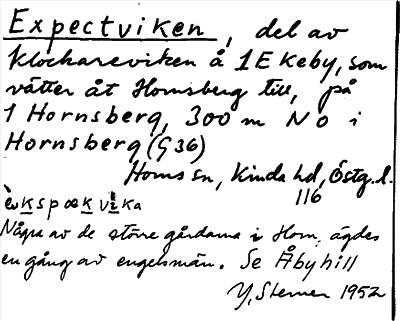 Expectviken, del av
Klockareviken å 1 Ekeby, som
vätter åt Hornsberg till, på
1 Hornsberg, 300 m NO i
Hornsberg (G 36)
Horns sn, Kinda hd, Östg. l.
116
èkspækvika
Några av de större gårdarna i Horn, ägdes
en gång av engelsmän. Se Åbyhill
Y, Sterner 1952